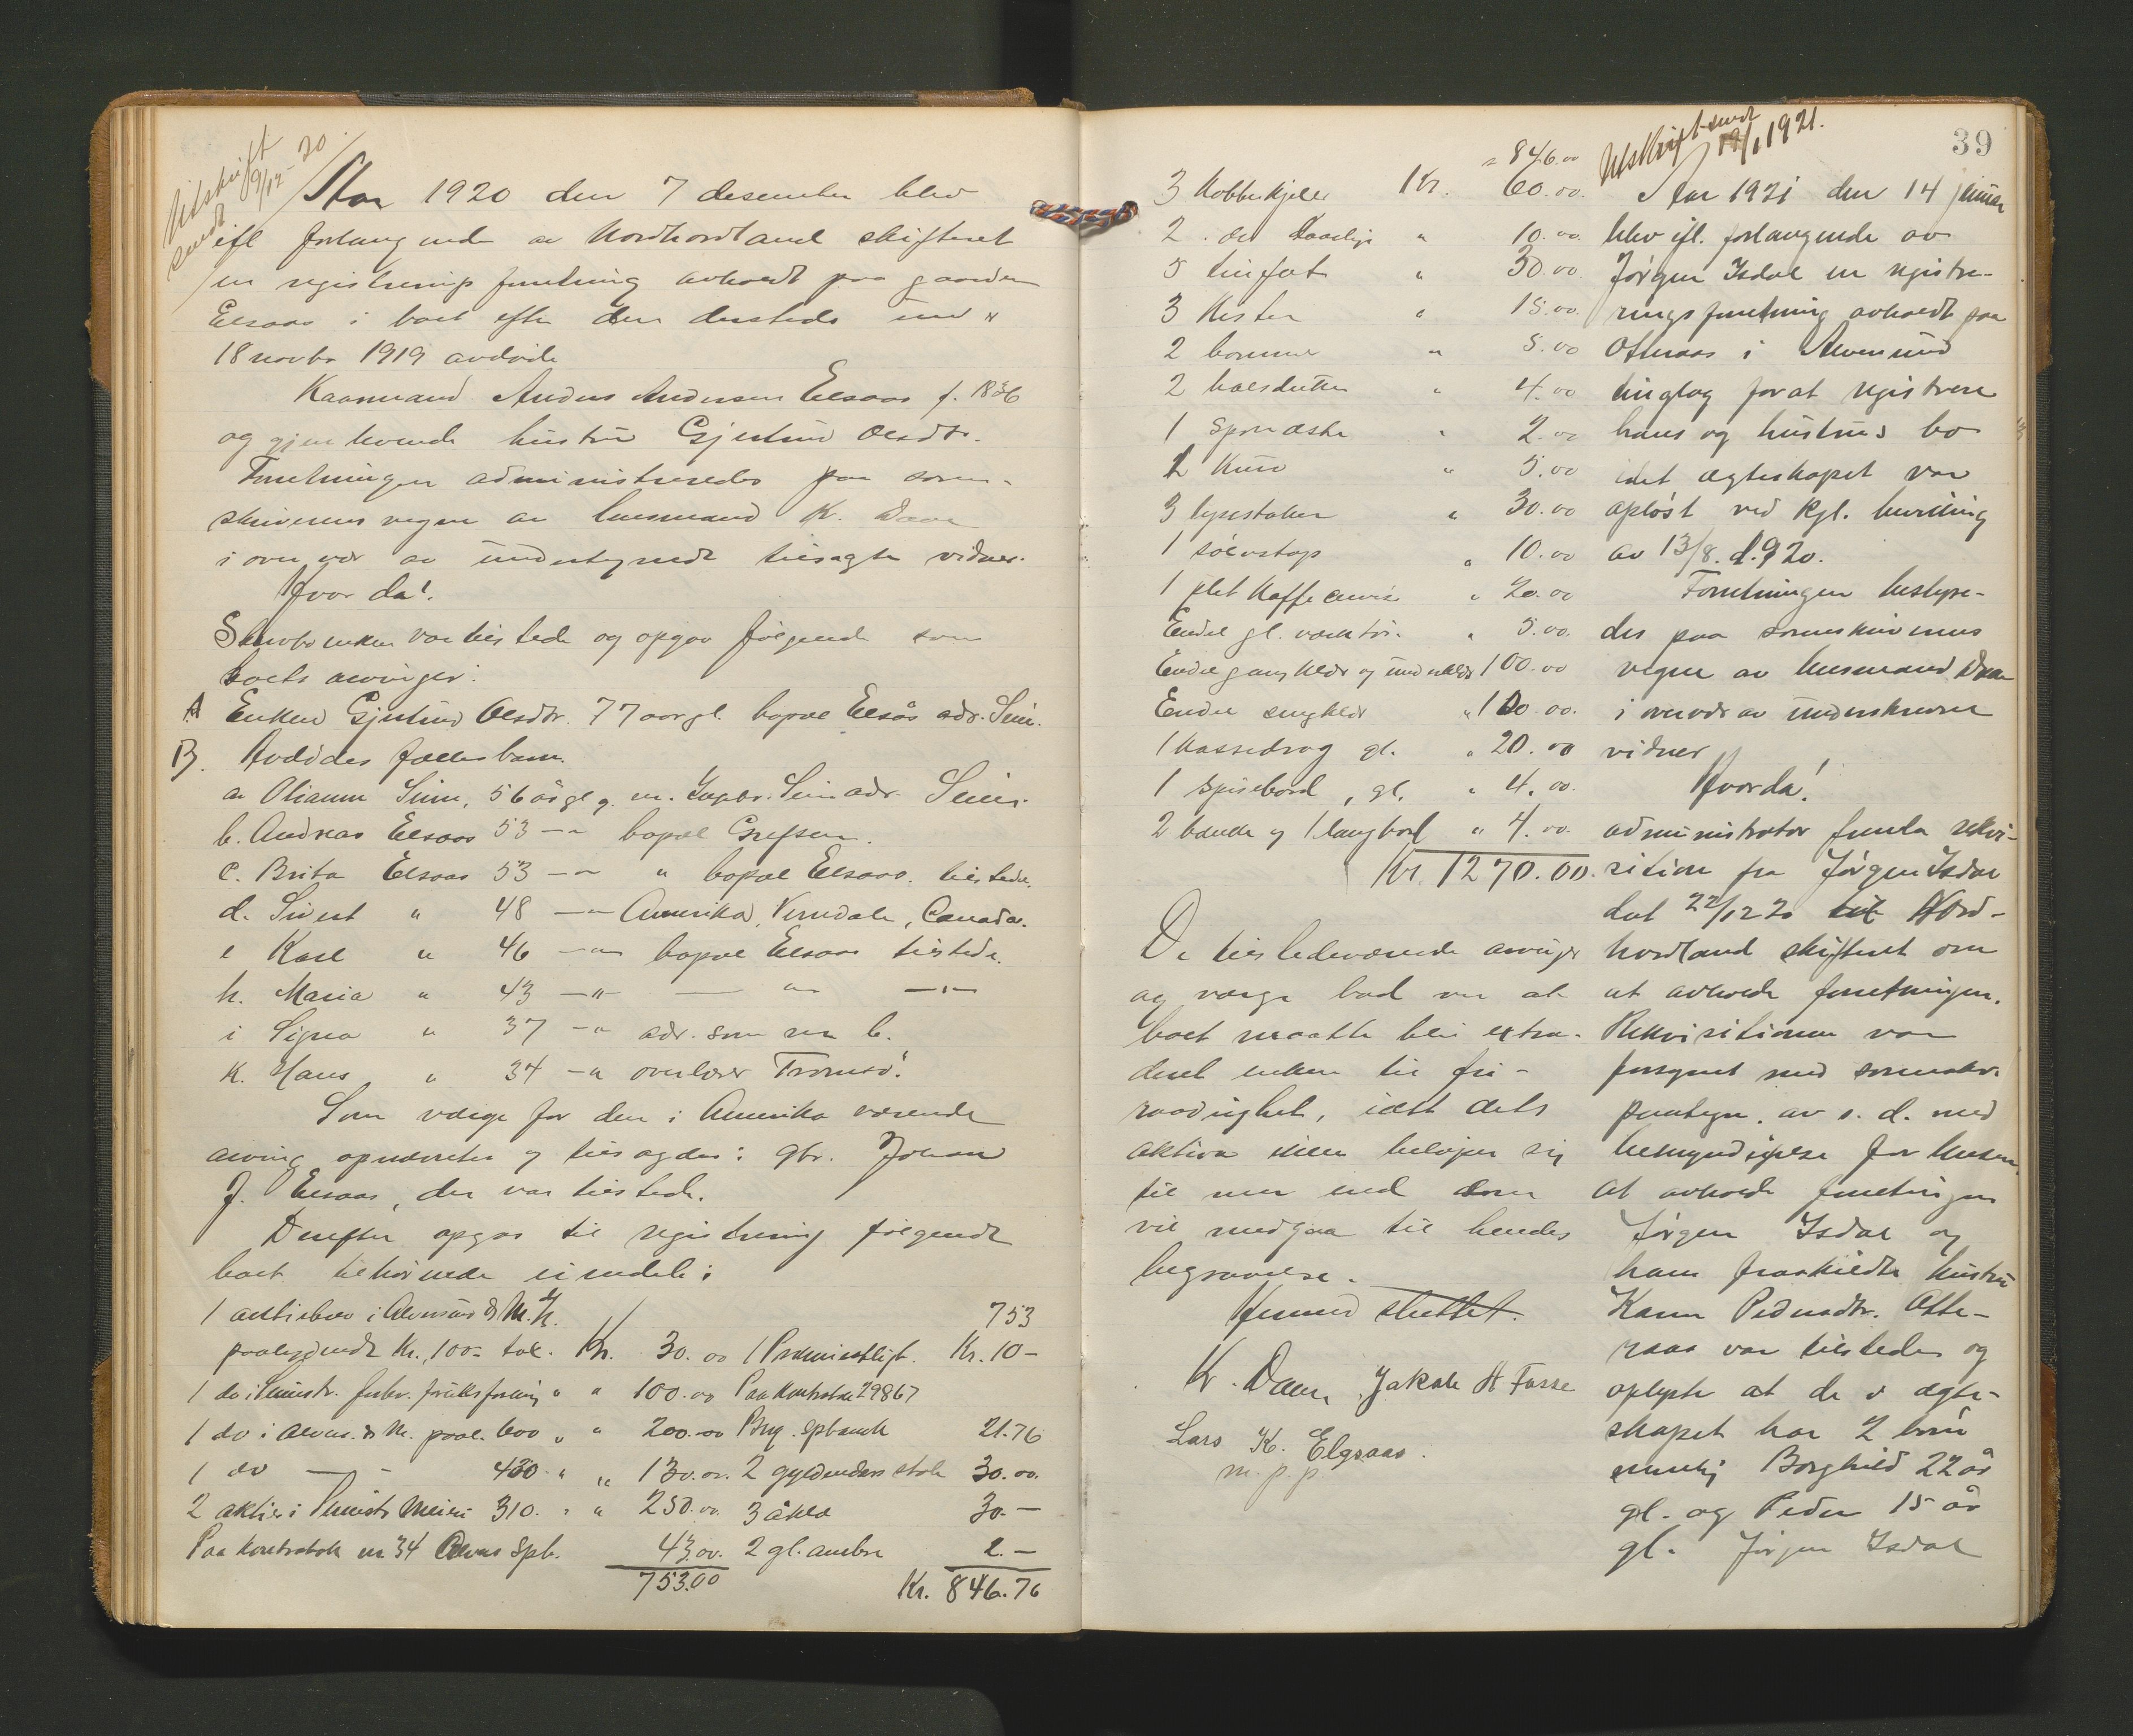 Utskrift
sendt 9/12-20
Aar 1920 den 7 desember blev
ifl forlangende av Nordhordland skifteret
en registrerings forretning avholdt paa gaarden
Elsaas i boet efter den dersteds
18 novbr 1919 avdøde
Kaarmand Anders Andersen Elsaas f. 1836
og gjenlevende hustru Gjertrud Olsdtr.
Forretningen administreredes paa soren-
skriverens vegne av lensmand K. Daae
i overvær av undertegnede tilsagte vidner.
Hvorda!
Skarboenken var tilstede og opgav følgende som
boets arvinger:
A Enken Gjertrud Olsdtr. 77 aar gl. bopæl Elsås adr. Seim.
B. Avdødes fællesbarn.
a Olianna Seim, 56 år gl g. m. Ingebr. Seim adr. Seim.
b. Andreas Elsaas 53 -"- bopæl Grefsen.
c. Brita Elsaas 53 -"- " bopæl Elsaas. tilstede.
d. Sivert " 48 -"- Amerika, Verndale, Canada.
e Karl " 46 -"- bopæl Elsaas tilstede.
h. Maria " 43 -"- — " -"-
i Signa " 37 -" adr. som ved b.
k. Hans " 34 -" overlærer Tromsø.
Som værge for den i Amerika værende
arving opnævntes og tilsagdes: gbr. Johan
J. Elsaas, der var tilstede.
Derefter opgas til registrering følgende
boet tilhørende eiendele:
1 aktiebrev i Alversund & M. H. 753
paalydende Kr. 100- tal. Kr. 30.00 1 Kr. 10-
1 do i 100.00 Paa Kontrabok 29867
1 do i Alvers. & M. paal. 600 " " 200.00 Brg. Spbank 21.76
1 do — - 430 " " 130.00. 2 gyldenlærs stole 30.00.
2 aktier i Meieri 310. " " 250.00 3 åklæ 30.—
Paa kontrabok nr. 34 Alvers Spb. 43.00. 2 gl. 2.—
753.00 Kr. 846.76
39
" 846.00
3 Kobberkjeler Kr. 60.00.
2 do daarlige " 10.00.
5 tinfat " 30.00.
3 Kister " 15.00.
2 bommer " 5.00
2 halsdukker " 4.00
1 sponæske " 2.00
1 Kurv " 5.00
3 lysestaker " 30.00
1 sølvstop " 10.00
1 plet Kaffeservise " 20.00
Endel gl. verktøi. " 5.00.
Endel gangklær og underklær 100.00
Endel sengklær " 100.00.
1 Kassedrag gl. " 20.00
1 Spisebord, gl. " 4.00.
2 bænke og 1 langbord " 4.00.
Kr. 1270.00.
De tilstedeværende arvinger
og værge bad om at
boet maatte bli extra-
deret enken til fri-
raadighet, idet dets
aktiva ikke beløper sig
til mer end som
vil medgaa til hendes
begravelse.
Hermed sluttet.
K. Daae, Jakob A Fosse
Lars K. Elgsaas.
m. p. p
Utskrift sendt
19/1 1921.
Aar 1921 den 14 januar
blev ifl. forlangende av
Jørgen Isdal en registre-
rings forretning avholdt paa
Otteraas i Alversund
tinglag for at registrere
hans og hustrus bo
idet ægteskapet var
opløst ved kgl. bevilling
av 13/8. d. 920.
Forretningen bestyre-
des paa sorenskriverens
vegne av lensmand Daae
i overvær av underskrevne
vidner
Hvorda!
administrator fremla rekvi-
sition fra Jørgen Isdal
dat 22/12 20 til Nord-
hordland skifteret om
at avholde forretningen.
Rekvisitionen var
forsynet med sorenskr.
paategn. av s. d. med
bemyndigelse for lensm.
at avholde forretningen
Jørgen Isdal og
hans fraskildte hustru
Karen Pedersdtr. Otte-
raas var tilstede og
oplyste at de i ægte-
skapet har 2 barn
nemlig Borghild 22 år
gl. og Peder 15 år
gl. Jørgen Isdal